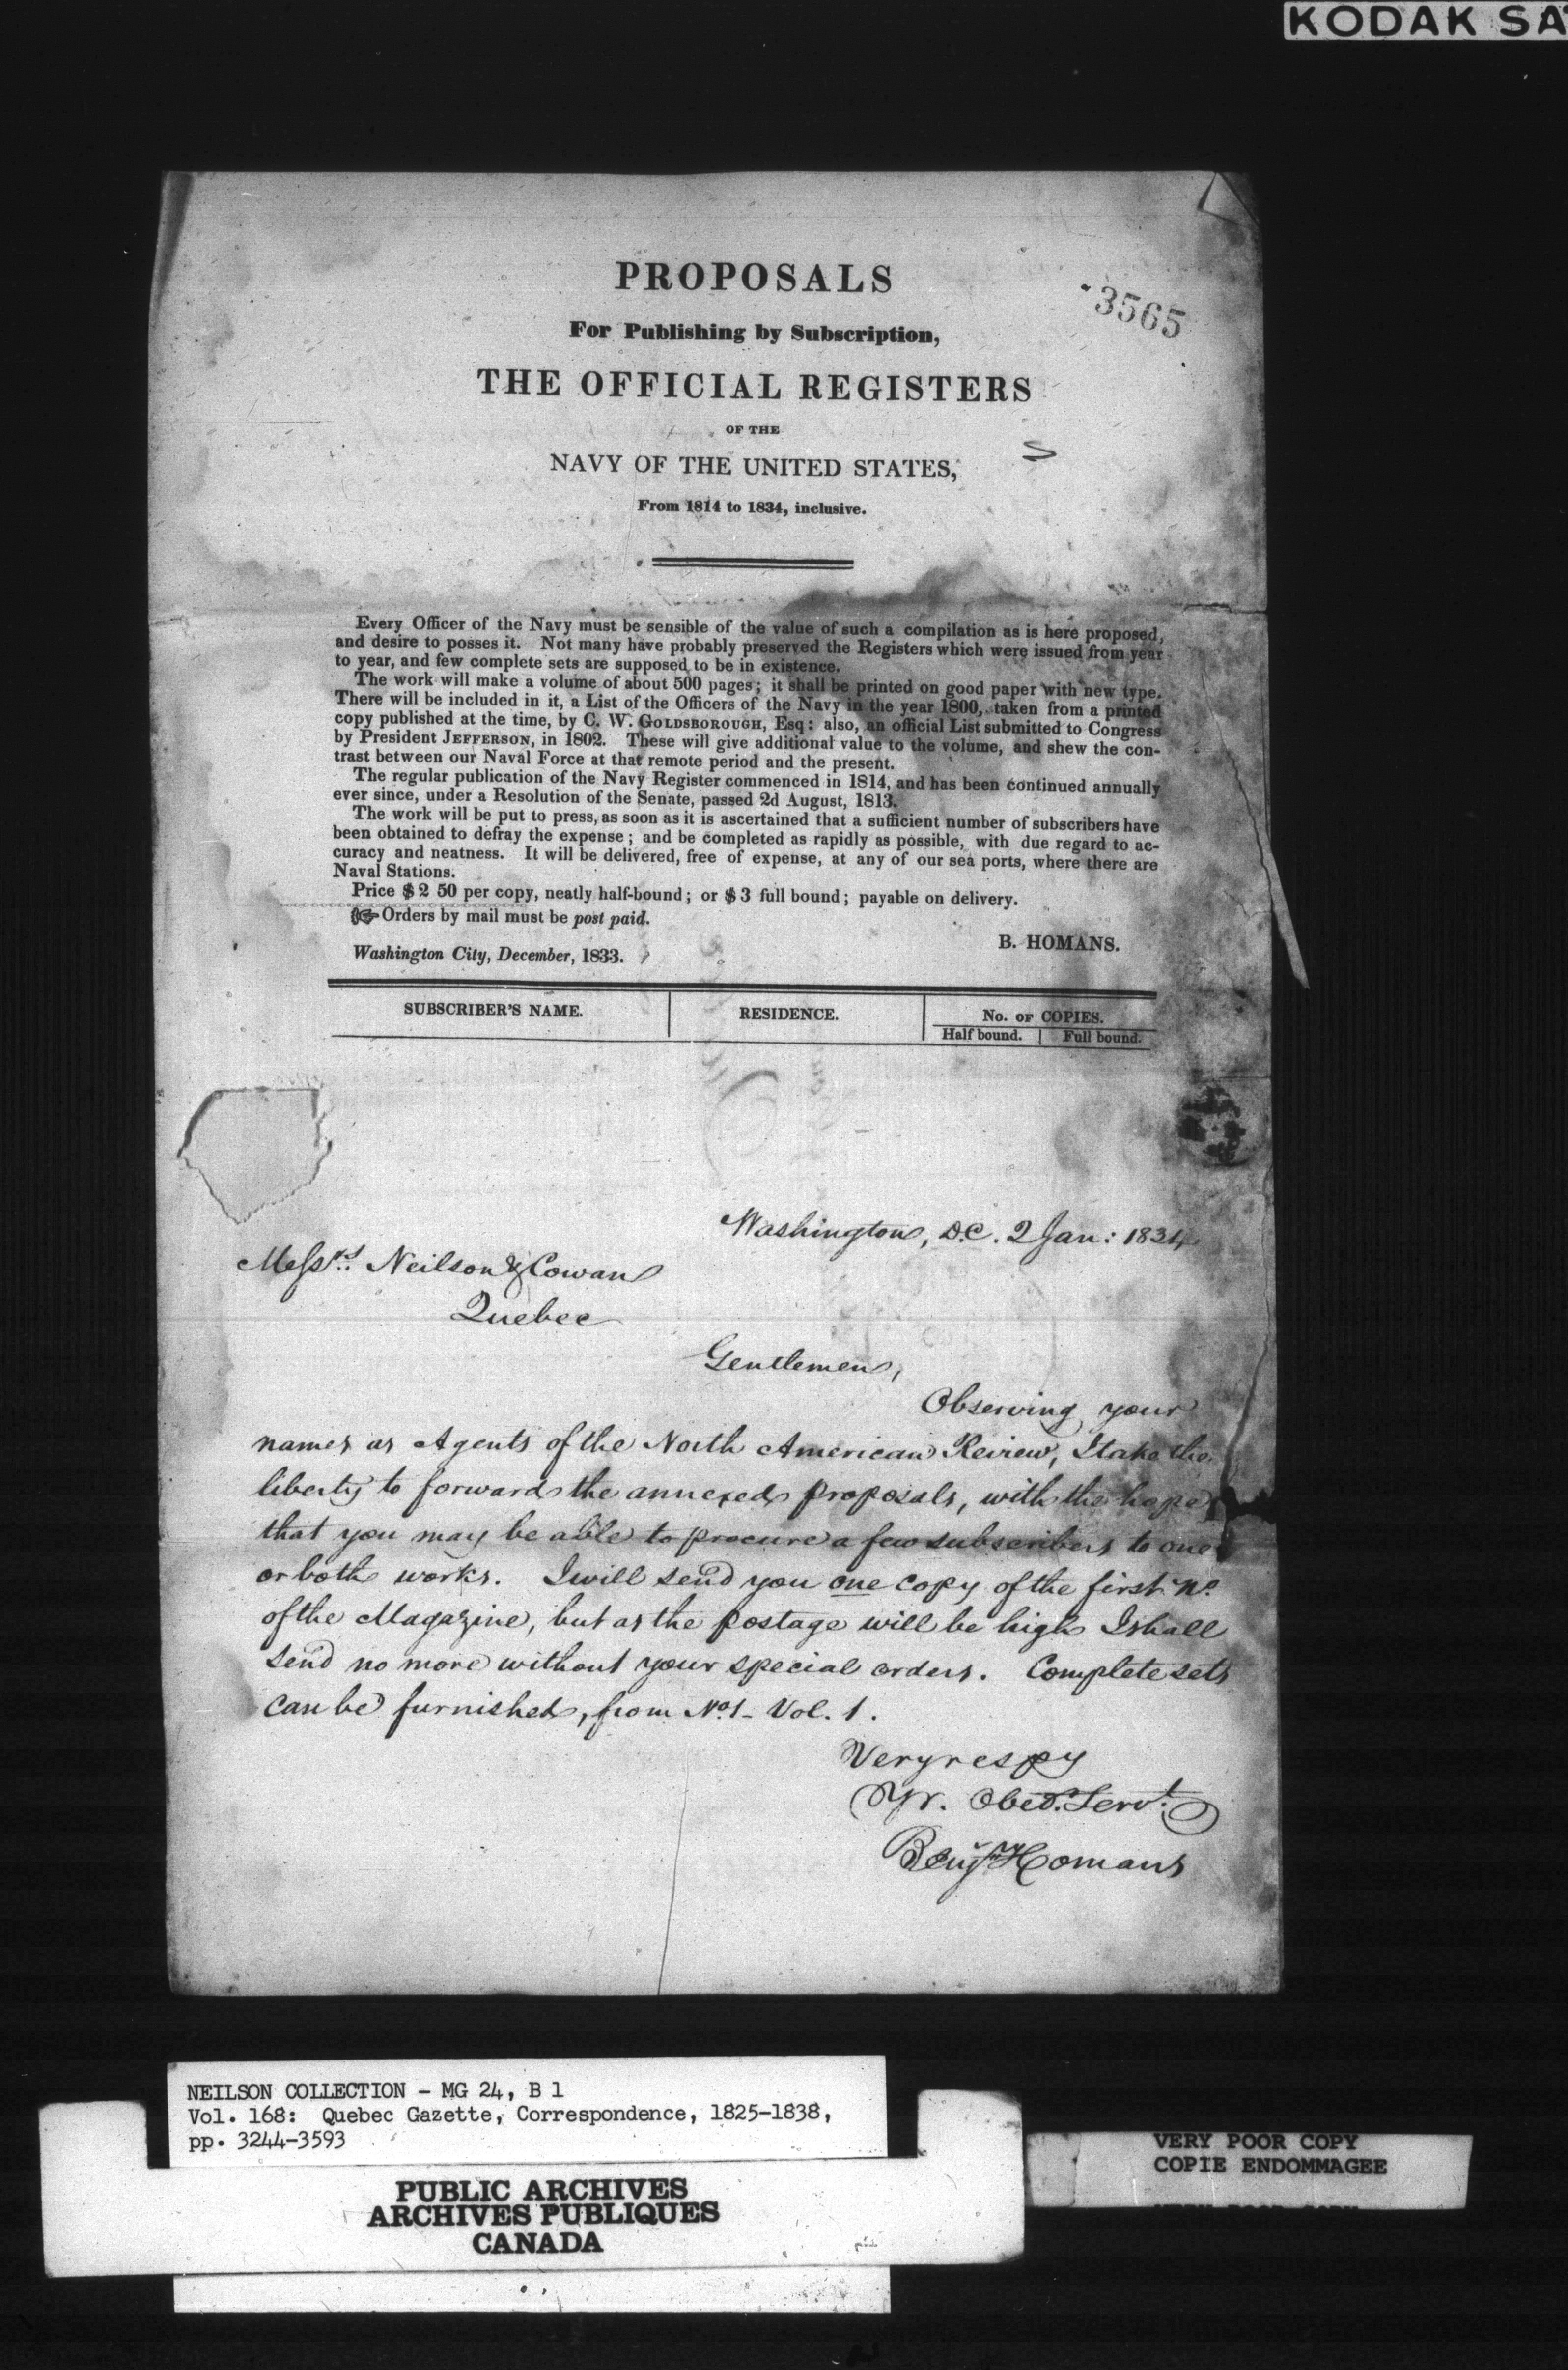 KODAK SA
PROPOSALS
3565
For Publishing by Subscription,
THE OFFICIAL REGISTERS
OF THE
NAVY OF THE UNITED STATES,
From 1814 to 1834, inclusive.
Every Officer of the Navy must be sensible of the value of such a compilation as is here proposed,
and desire to posses it. Not many have probably preserved the Registers which were issued from year
to year, and few complete sets are supposed to be in existence.
The work will make a volume of about 500 pages; it shall be printed on good paper with new type.
There will be included in it, a List of the Officers of the Navy in the year 1800, taken from a printed
copy published at the time, by C. W. GOLDSBOROUGH, Esq: also, an official List submitted to Congress
by President JEFFERSON, in 1802. These will give additional value to the volume, and shew the con-
trast between our Naval Force at that remote period and the present.
The regular publication of the Navy Register commenced in 1814, and has been continued annually
ever since, under a Resolution of the Senate, passed 2d August, 1813.
The work will be put to press, as soon as it is ascertained that a sufficient number of subscribers have
been obtained to defray the expense; and be completed as rapidly as possible, with due regard to ac-
curacy and neatness. It will be delivered, free of expense, at any of our sea ports, where there are
Naval Stations.
Price $2 50 per copy, neatly half-bound; or $3 full bound; payable on delivery.
☞ Orders by mail must be post paid.
B. HOMANS.
Washington City, December, 1833.
SUBSCRIBER'S NAME. RESIDENCE. No. OF COPIES.
Half bound. | Full bound.
Washington, D.C. 2 Jan: 1834
Messrs. Neilson & Cowan
Quebec
Gentlemen,
Observing your
names as Agents of the North American Review, I take the
liberty to forward the annexed proposals, with the hope
that you may be able to procure a few subscribers to one
or both works. I will send you one copy of the first No.
of the Magazine, but as the postage will be high I shall
send no more without your special orders. Complete sets
can be furnished, from No. 1 - Vol. 1.
Very respy
Yr. Obed. Servt.
Benj Homans
NEILSON COLLECTION - MG 24, B 1
Vol. 168: Quebec Gazette, Correspondence, 1825-1838,
pp. 3244-3593
PUBLIC ARCHIVES
ARCHIVES PUBLIQUES
CANADA
VERY POOR COPY
COPIE ENDOMMAGEE